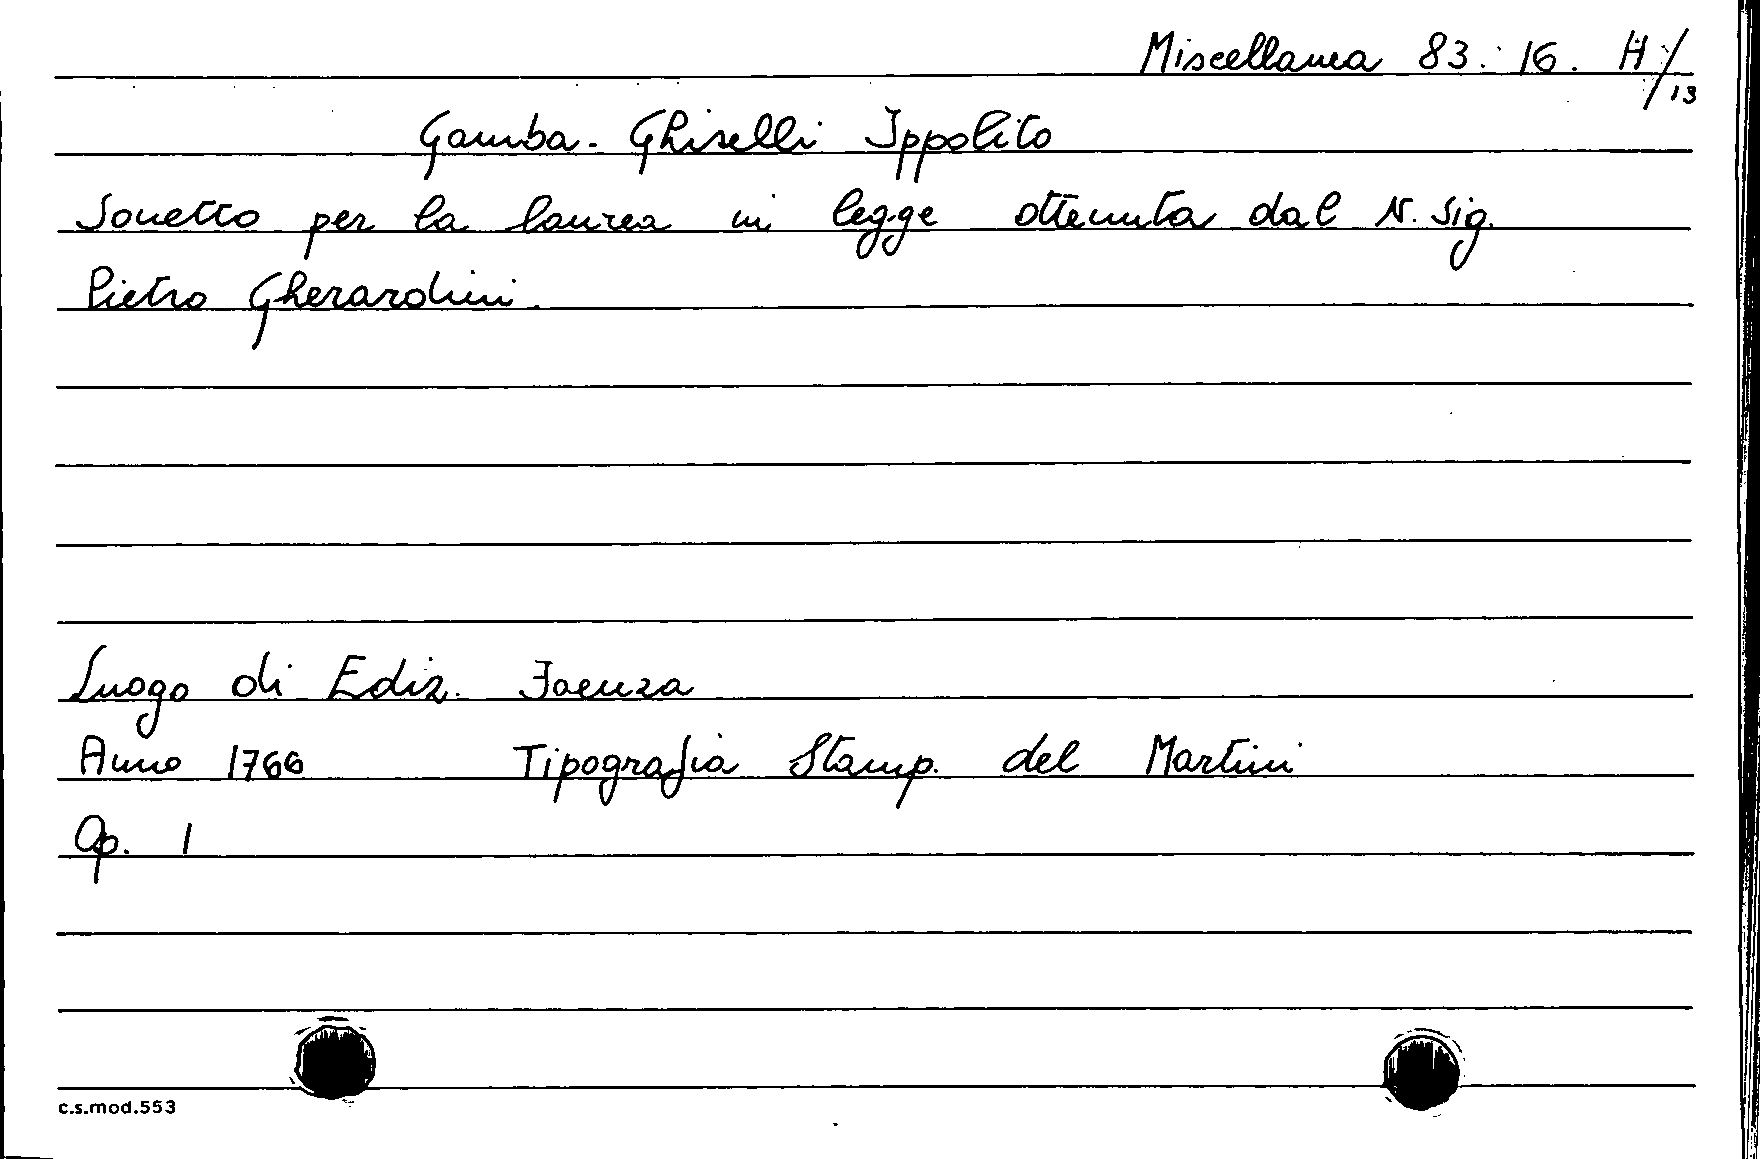 Miscellanea 83. 16. H/13
Gamba-Ghiselli Ippolito
Sonetto per la laurea in legge ottenuta dal N. Sig.
Pietro Gherardini
Luogo di Ediz. Faenza
Anno 1766 Tipografia Stamp. del Martini
Op. 1
c.s.mod.553